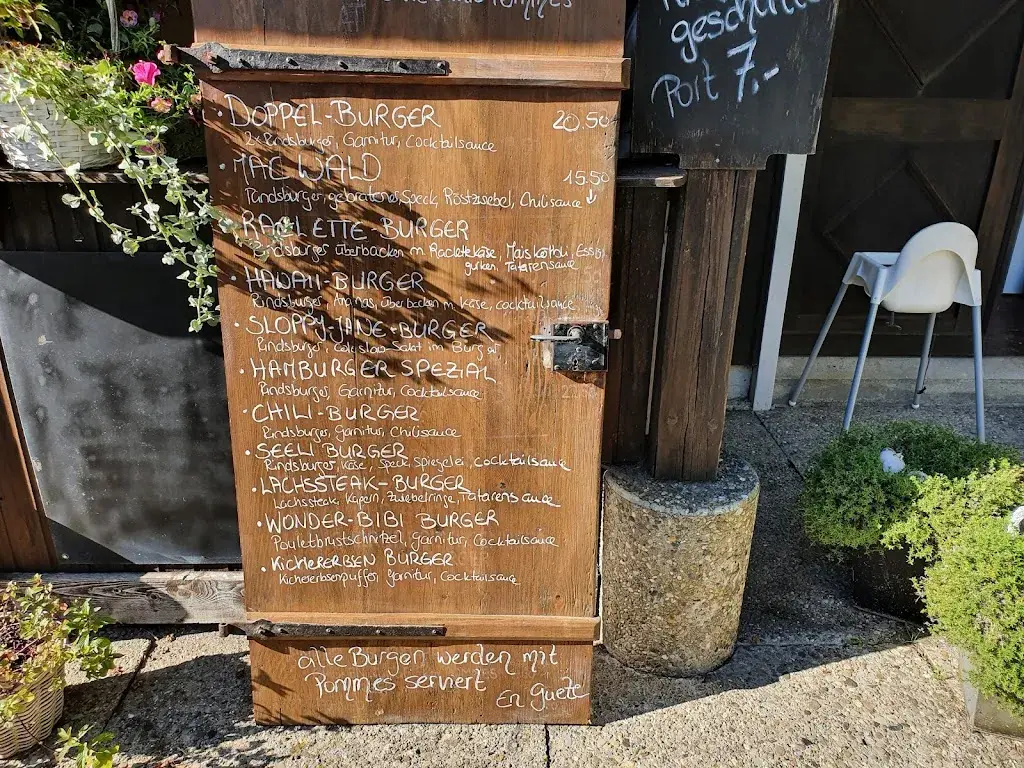 Pommes
geschnitte
Port 7.-
• DOPPEL-BURGER 20.50
2x Rindsburger, Garnitur, Cocktailsauce
• MAC WALD 15.50
Rindsburger, gebratener Speck, Röstzwiebel, Chilisauce ↓
• RACLETTE-BURGER
Rindsburger überbacken m. Racletekäse, Maiskölbli, Essig-
gurken, Tatarensauce
• HAWAII-BURGER
Rindsburger, Ananas, überbacken m. Käse, cocktailsauce
• SLOPPY-JANE-BURGER
Rindsburger, Coleslaw-Salat im Burger
• HAMBURGER SPEZIAL
Rindsburger, Garnitur, Cocktailsauce
• CHILI-BURGER
Rindsburger, Garnitur, Chilisauce
• SEELI BURGER
Rindsburger, Käse, Speck, Spiegelei, Cocktailsauce
• LACHSSTEAK-BURGER
Lachssteak, Kapern, Zwiebelringe, Tatarensauce
• WONDER-BIBI BURGER
Pouletbrustschnitzel, Garnitur, Cocktailsauce
• KICHERERBSEN BURGER
Kichererbsenpuffer, Garnitur, Cocktailsauce
alle Burger werden mit
Pommes serviert
En Guete